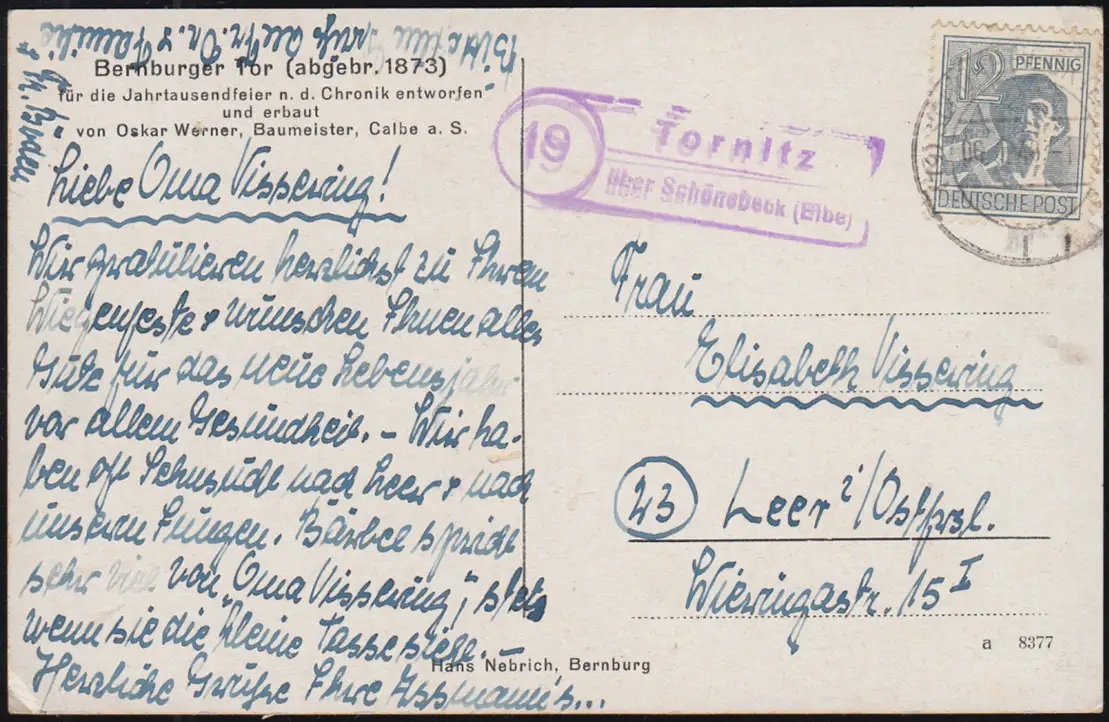 Bitte um Grüße an Fr. Dr. & Familie
& Fr. Broden
Bernburger Tor (abgebr. 1873)
für die Jahrtausendfeier n. d. Chronik entworfen
und erbaut
von Oskar Werner, Baumeister, Calbe a. S.
Liebe Oma Vissering!
Wir gratulieren herzlichst zu Ihrem
Wiegenfeste & wünschen Ihnen alles
Gute für das neue Lebensjahr
vor allem Gesundheit. – Wir ha-
ben oft Sehnsucht nach Leer & nach
unsern Jungen. Bärbel spricht
sehr viel von „Oma Vissering", stets
wenn sie die kleine Tasse sieht. –
Herzliche Grüße Ihre Assmann's...
Hans Nebrich, Bernburg
19
Tornitz
über Schönebeck (Elbe)
12 PFENNIG
DEUTSCHE POST
Frau
Elisabeth Vissering
23 Leer i/Ostfrsl.
Wieringastr. 15 I
a 8377